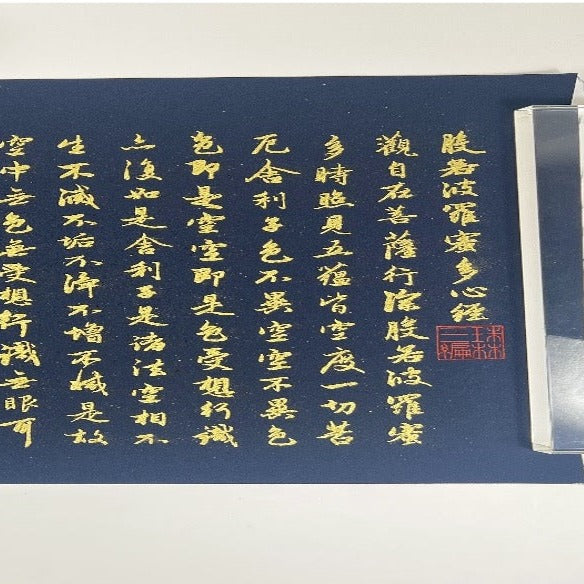 般若波羅蜜多心經
觀自在菩薩行深般若波羅蜜
多時照見五蘊皆空度一切苦
厄舍利子色不異空空不異色
色即是空空即是色受想行識
亦復如是舍利子是諸法空相不
生不滅不垢不淨不增不減是故
空中無色無受想行識無眼耳